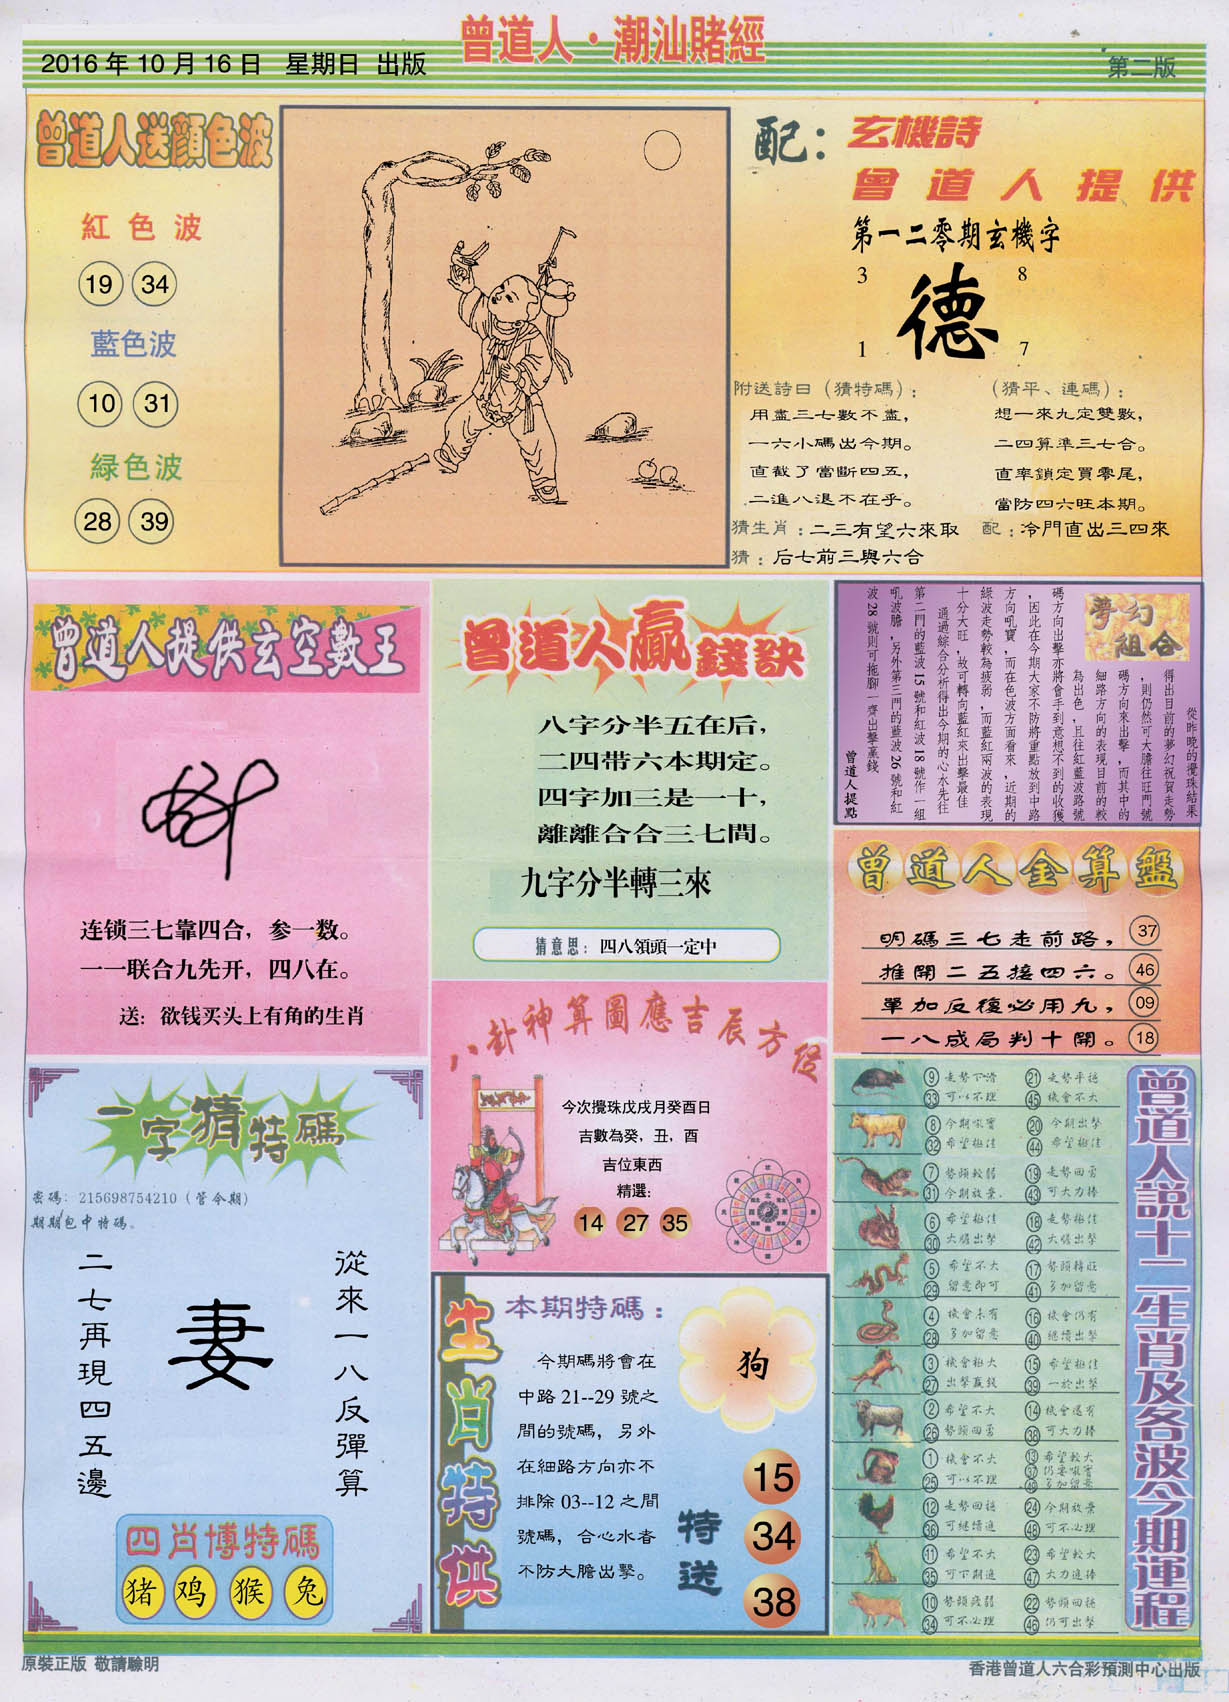 曾道人·潮汕賭經
2016年10月16日 星期日 出版
第二版
曾道人送顏色波
紅色波
19 34
藍色波
10 31
緑色波
28 39
配:玄機詩
曾道人提供
第一二零期玄機字
3 8
德
1 7
附送詩曰(猜特碼):
用盡三七數不盡,
一六小碼出今期。
直截了當斷四五,
二進八退不在乎。
(猜平、連碼):
想一來九定雙數,
二四算準三七合。
直率鎖定買零尾,
當防四六旺本期。
猜生肖:二三有望六來取
配:冷門直出三四來
猜:后七前三與六合
曾道人提供玄空數王
连锁三七靠四合,参一数。
一一联合九先开,四八在。
送:欲钱买头上有角的生肖
曾道人贏錢訣
八字分半五在后,
二四带六本期定。
四字加三是一十,
離離合合三七間。
九字分半轉三來
猜意思:四八領頭一定中
夢幻組合
從昨晚的攪珠結果
得出目前的夢幻祝賀走勢
,則仍然可大膽往旺門號
碼方向來出擊,而其中的
細路方向的表現目前的較
為出色,且往紅藍波路號
碼方向出擊亦將會手到意想不到的收獲
,因此在今期大家不防將重點放到中路
方向吼寶,而在色波方面看來,近期的
綠波走勢較為疲弱,而藍紅兩波的表現
十分大旺,故可轉向藍紅來出擊最佳
通過綜合分析得出今期的心水先往
第二門的藍波15號和紅波18號作一組
吼波膽,另外第三門的藍波26號和紅
波28號則可拖腳一齊出擊贏錢
曾道人提點
曾道人金算盤
明碼三七走前路, 37
推開二五接四六。 46
單加反復必用九, 09
一八成局判十開。 18
一字猜特碼
密碼:215698754210(管今期)
期期包中特碼。
從來一八反彈算
妻
二七再現四五邊
四肖博特碼
猪 鸡 猴 兔
八卦神算圖應吉辰方位
今次攪珠戊戌月癸酉日
吉數為癸,丑,酉
吉位東西
精選:
14 27 35
生肖特供
本期特碼:
今期碼將會在
中路21--29號之
間的號碼,另外
在細路方向亦不
排除03--12之間
號碼,合心水者
不防大膽出擊。
狗
特送
15
34
38
曾道人説十二生肖及各波今期運程
9 走勢下滑 21 走勢平穩
33 可以不理 45 機會不大
8 今期吼寶 20 今期出擊
32 希望極佳 44 希望極佳
7 勢頭較弱 19 走勢回勇
31 今期放棄. 43 可大力捧
6 希望極佳 18 走勢極佳
30 大膽出擊 42 大膽出擊
5 希望不大 17 勢頭轉旺
29 留意即可 41 多加留意
4 機會未有 16 機會仍有
28 多加留意 40 繼續出擊
3 機會極大 15 希望極佳
27 出擊贏錢 39 一於出擊
2 希望不大 14 機會還有
26 勢頭回勇 38 可大力捧
1 機會不大 13 希望較大
25 可以不理 37 仍要吼實
49 多加留意
12 走勢回穩 24 今期放棄
36 可繼續追 48 可不必理
11 希望不大 23 希望較大
35 可下期追 47 大力追捧
10 勢頭疲弱 22 勢頭回穩
34 可不必理 46 仍可出擊
原裝正版 敬請驗明
香港曾道人六合彩預測中心出版